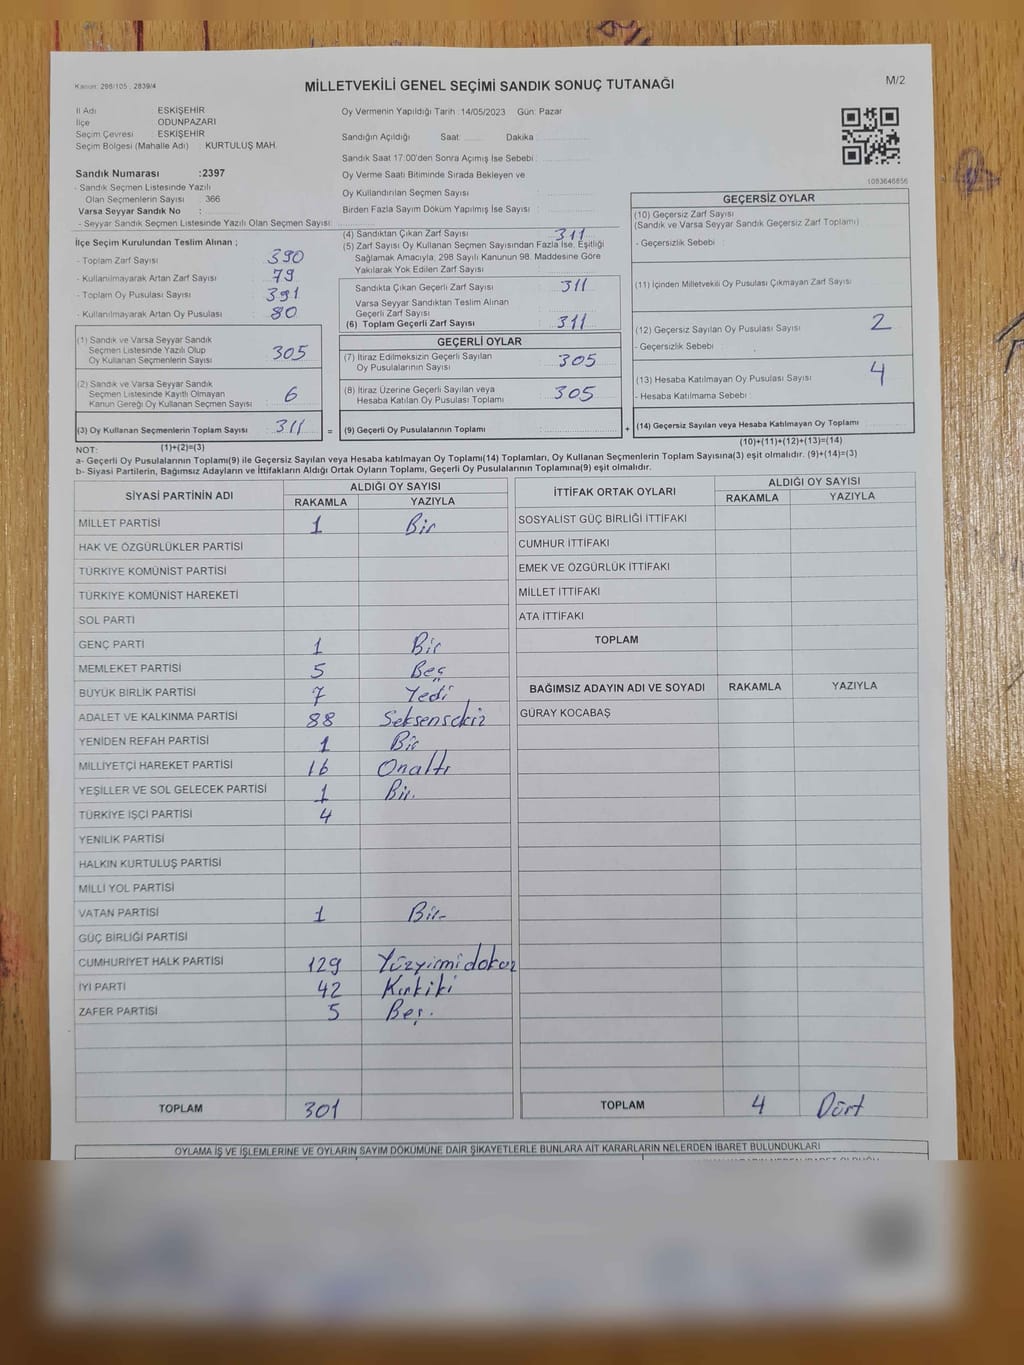 Kanun: 298/105 , 2839/4
MİLLETVEKİLİ GENEL SEÇİMİ SANDIK SONUÇ TUTANAĞI
M/2
İl Adı ESKİŞEHİR
İlçe ODUNPAZARI
Seçim Çevresi : ESKİŞEHİR
Seçim Bölgesi (Mahalle Adı) : KURTULUŞ MAH.
Oy Vermenin Yapıldığı Tarih : 14/05/2023 Gün: Pazar
Sandığın Açıldığı Saat: Dakika :
Sandık Saat 17:00'den Sonra Açımış İse Sebebi :
Oy Verme Saati Bitiminde Sırada Bekleyen ve
Oy Kullandırılan Seçmen Sayısı :
Birden Fazla Sayım Döküm Yapılmış İse Sayısı :
1083646856
Sandık Numarası :2397
- Sandık Seçmen Listesinde Yazılı
Olan Seçmenlerin Sayısı : 366
Varsa Seyyar Sandık No :
- Seyyar Sandık Seçmen Listesinde Yazılı Olan Seçmen Sayısı:
İlçe Seçim Kurulundan Teslim Alınan ;
- Toplam Zarf Sayısı : 390
- Kullanılmayarak Artan Zarf Sayısı : 79
- Toplam Oy Pusulası Sayısı : 391
- Kullanılmayarak Artan Oy Pusulası : 80
(1) Sandık ve Varsa Seyyar Sandık
Seçmen Listesinde Yazılı Olup
Oy Kullanan Seçmenlerin Sayısı : 305
(2) Sandık ve Varsa Seyyar Sandık
Seçmen Listesinde Kayıtlı Olmayan
Kanun Gereği Oy Kullanan Seçmen Sayısı : 6
(3) Oy Kullanan Seçmenlerin Toplam Sayısı : 311
(1)+(2)=(3)
(4) Sandıktan Çıkan Zarf Sayısı : 311
(5) Zarf Sayısı Oy Kullanan Seçmen Sayısından Fazla İse, Eşitliği
Sağlamak Amacıyla; 298 Sayılı Kanunun 98. Maddesine Göre
Yakılarak Yok Edilen Zarf Sayısı :
Sandıkta Çıkan Geçerli Zarf Sayısı : 311
Varsa Seyyar Sandıktan Teslim Alınan
Geçerli Zarf Sayısı :
(6) Toplam Geçerli Zarf Sayısı : 311
GEÇERLİ OYLAR
(7) İtiraz Edilmeksizin Geçerli Sayılan
Oy Pusulalarının Sayısı : 305
(8) İtiraz Üzerine Geçerli Sayılan veya
Hesaba Katılan Oy Pusulası Toplamı : 305
= (9) Geçerli Oy Pusulalarının Toplamı :
GEÇERSİZ OYLAR
(10) Geçersiz Zarf Sayısı
(Sandık ve Varsa Seyyar Sandık Geçersiz Zarf Toplamı) :
- Geçersizlik Sebebi :
(11) İçinden Milletvekili Oy Pusulası Çıkmayan Zarf Sayısı :
(12) Geçersiz Sayılan Oy Pusulası Sayısı : 2
- Geçersizlik Sebebi :
(13) Hesaba Katılmayan Oy Pusulası Sayısı : 4
- Hesaba Katılmama Sebebi :
+ (14) Geçersiz Sayılan veya Hesaba Katılmayan Oy Toplamı :
(10)+(11)+(12)+(13)=(14)
NOT:
a- Geçerli Oy Pusulalarının Toplamı(9) ile Geçersiz Sayılan veya Hesaba katılmayan Oy Toplamı(14) Toplamları, Oy Kullanan Seçmenlerin Toplam Sayısına(3) eşit olmalıdır. (9)+(14)=(3)
b- Siyasi Partilerin, Bağımsız Adayların ve İttifakların Aldığı Ortak Oyların Toplamı, Geçerli Oy Pusulalarının Toplamına(9) eşit olmalıdır.
SİYASİ PARTİNİN ADI ALDIĞI OY SAYISI
RAKAMLA YAZIYLA
MİLLET PARTİSİ 1 Bir
HAK VE ÖZGÜRLÜKLER PARTİSİ
TÜRKİYE KOMÜNİST PARTİSİ
TÜRKİYE KOMÜNİST HAREKETİ
SOL PARTİ
GENÇ PARTİ 1 Bir
MEMLEKET PARTİSİ 5 Beş
BÜYÜK BİRLİK PARTİSİ 7 Yedi
ADALET VE KALKINMA PARTİSİ 88 Seksensekiz
YENİDEN REFAH PARTİSİ 1 Bir
MİLLİYETÇİ HAREKET PARTİSİ 16 Onaltı
YEŞİLLER VE SOL GELECEK PARTİSİ 1 Bir.
TÜRKİYE İŞÇİ PARTİSİ 4
YENİLİK PARTİSİ
HALKIN KURTULUŞ PARTİSİ
MİLLİ YOL PARTİSİ
VATAN PARTİSİ 1 Bir-
GÜÇ BİRLİĞİ PARTİSİ
CUMHURİYET HALK PARTİSİ 129 Yüzyirmidokuz
İYİ PARTİ 42 Kırkiki
ZAFER PARTİSİ 5 Beş.
TOPLAM 301
İTTİFAK ORTAK OYLARI ALDIĞI OY SAYISI
RAKAMLA YAZIYLA
SOSYALİST GÜÇ BİRLİĞİ İTTİFAKI
CUMHUR İTTİFAKI
EMEK VE ÖZGÜRLÜK İTTİFAKI
MİLLET İTTİFAKI
ATA İTTİFAKI
TOPLAM
BAĞIMSIZ ADAYIN ADI VE SOYADI RAKAMLA YAZIYLA
GÜRAY KOCABAŞ
TOPLAM 4 Dört
OYLAMA İŞ VE İŞLEMLERİNE VE OYLARIN SAYIM DÖKÜMÜNE DAİR ŞİKAYETLERLE BUNLARA AİT KARARLARIN NELERDEN İBARET BULUNDUKLARI